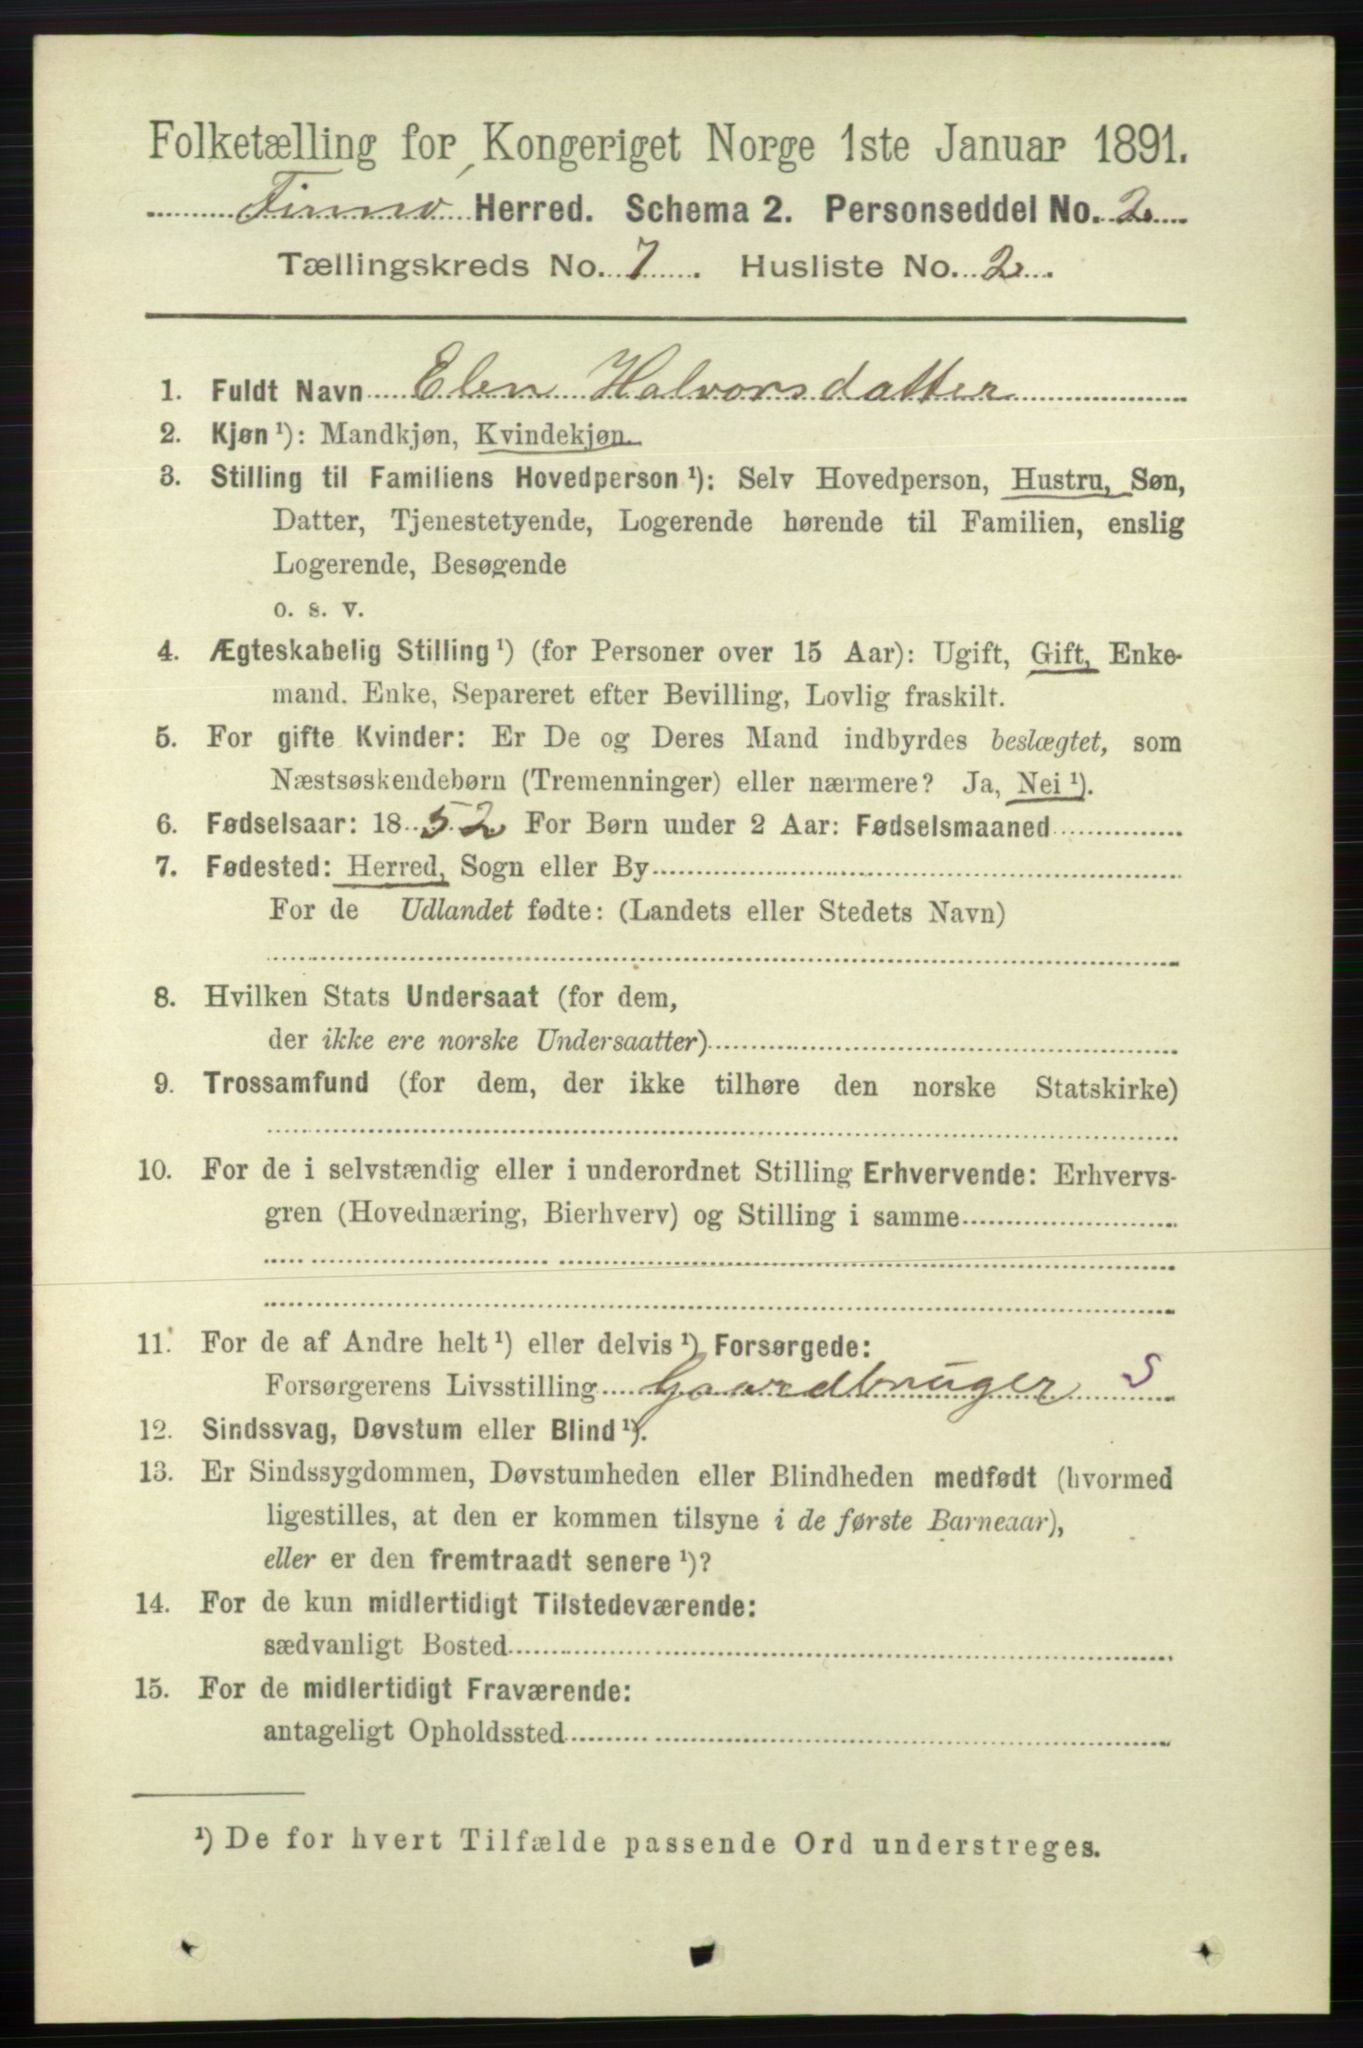 Folketælling for Kongeriget Norge 1ste Januar 1891.
Finnø Herred. Schema 2. Personseddel No. 2
Tællingskreds No. 7. Husliste No. 2.
1. Fuldt Navn Elen Halvorsdatter
2. Kjøn ¹): Mandkjøn, Kvindekjøn.
3. Stilling til Familiens Hovedperson ¹): Selv Hovedperson, Hustru, Søn,
Datter, Tjenestetyende, Logerende hørende til Familien, enslig
Logerende, Besøgende
o. s. v.
4. Ægteskabelig Stilling ¹) (for Personer over 15 Aar): Ugift, Gift, Enke-
mand. Enke, Separeret efter Bevilling, Lovlig fraskilt.
5. For gifte Kvinder: Er De og Deres Mand indbyrdes beslægtet, som
Næstsøskendebørn (Tremenninger) eller nærmere? Ja, Nei ¹).
6. Fødselsaar: 1852 For Børn under 2 Aar: Fødselsmaaned
7. Fødested: Herred, Sogn eller By
For de Udlandet fødte: (Landets eller Stedets Navn)
8. Hvilken Stats Undersaat (for dem,
der ikke ere norske Undersaatter)
9. Trossamfund (for dem, der ikke tilhøre den norske Statskirke)
10. For de i selvstændig eller i underordnet Stilling Erhvervende: Erhvervs-
gren (Hovednæring, Bierhverv) og Stilling i samme
11. For de af Andre helt ¹) eller delvis ¹) Forsørgede:
Forsørgerens Livsstilling Gaardbruger S
12. Sindssvag, Døvstum eller Blind ¹).
13. Er Sindssygdommen, Døvstumheden eller Blindheden medfødt (hvormed
ligestilles, at den er kommen tilsyne i de første Barneaar),
eller er den fremtraadt senere ¹)?
14. For de kun midlertidigt Tilstedeværende:
sædvanligt Bosted
15. For de midlertidigt Fraværende:
antageligt Opholdssted
¹) De for hvert Tilfælde passende Ord understreges.